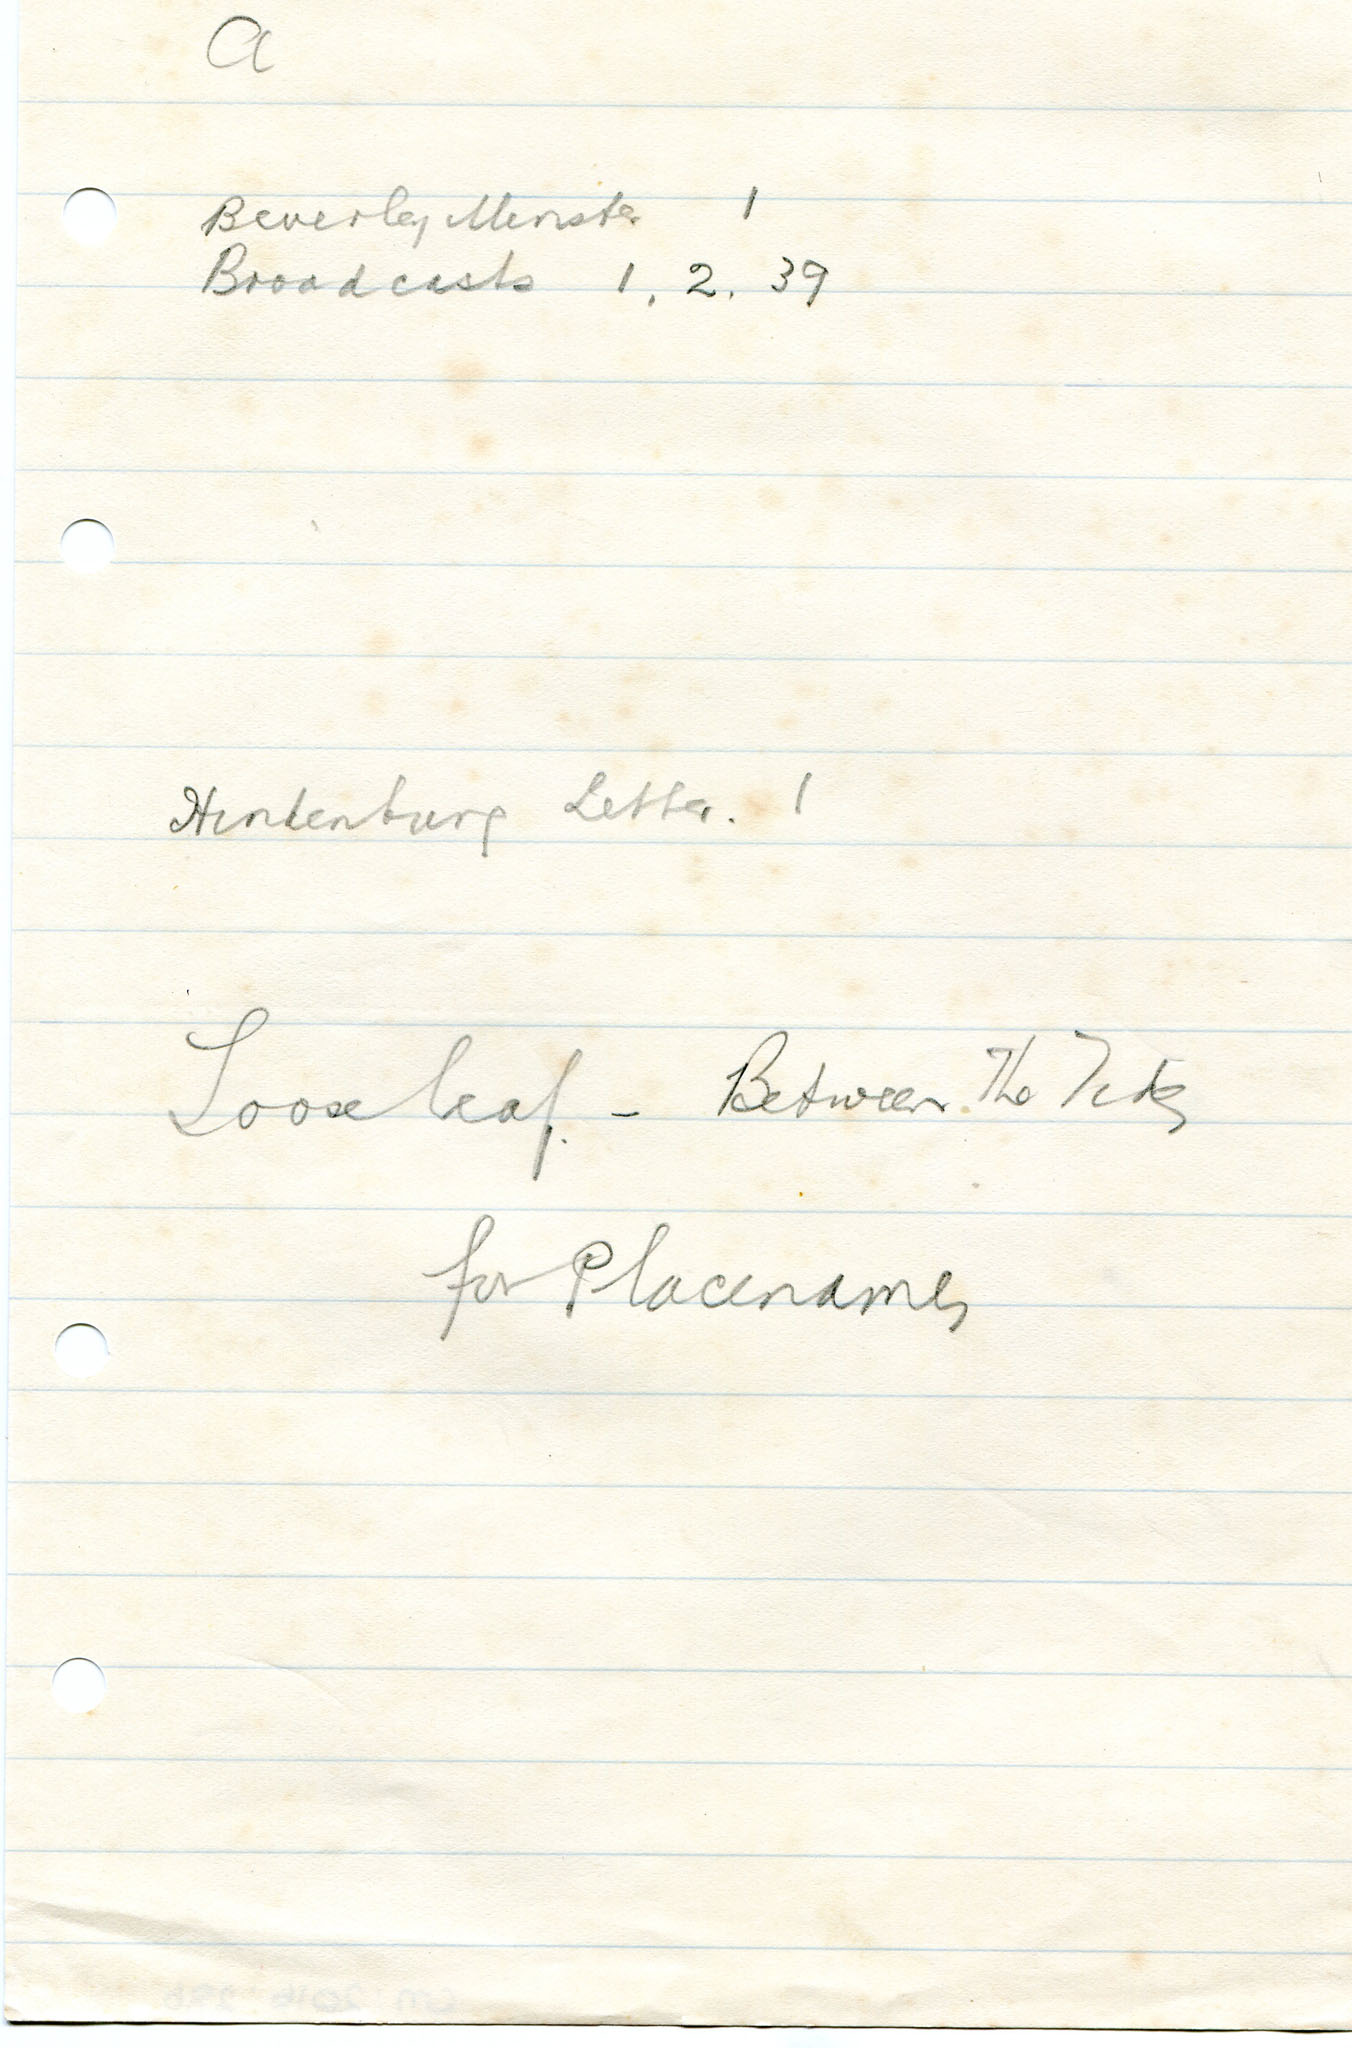 a
Beverley Minster 1
Broadcasts 1, 2, 39
Hindenburg Letter. 1
Loose leaf. - Between The Tides
for Placenames